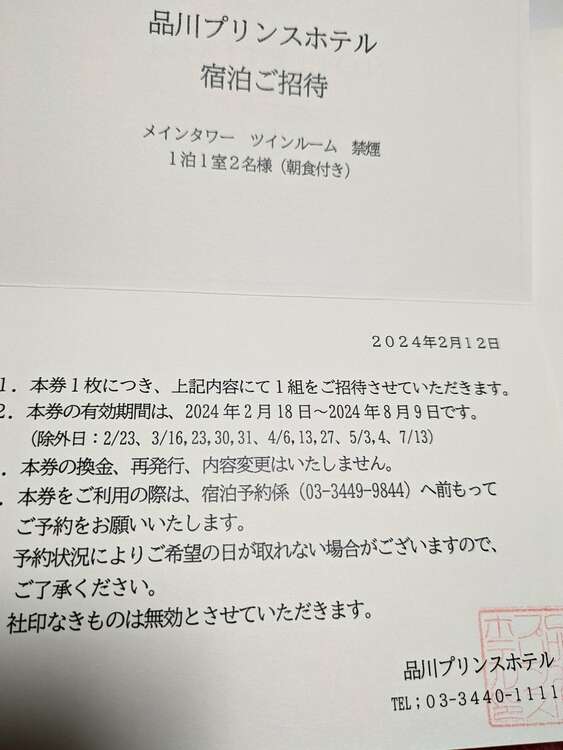 品川プリンスホテル
宿泊ご招待
メインタワー　ツインルーム　禁煙
1泊1室2名様（朝食付き）
２０２４年２月１２日
1．本券1枚につき、上記内容にて1組をご招待させていただきます。
2．本券の有効期間は、2024年2月18日～2024年8月9日です。
（除外日：2/23、3/16,23,30,31、4/6,13,27、5/3,4、7/13）
．本券の換金、再発行、内容変更はいたしません。
．本券をご利用の際は、宿泊予約係（03-3449-9844）へ前もって
ご予約をお願いいたします。
予約状況によりご希望の日が取れない場合がございますので、
ご了承ください。
社印なきものは無効とさせていただきます。
品川プリンスホテル
TEL；03-3440-1111